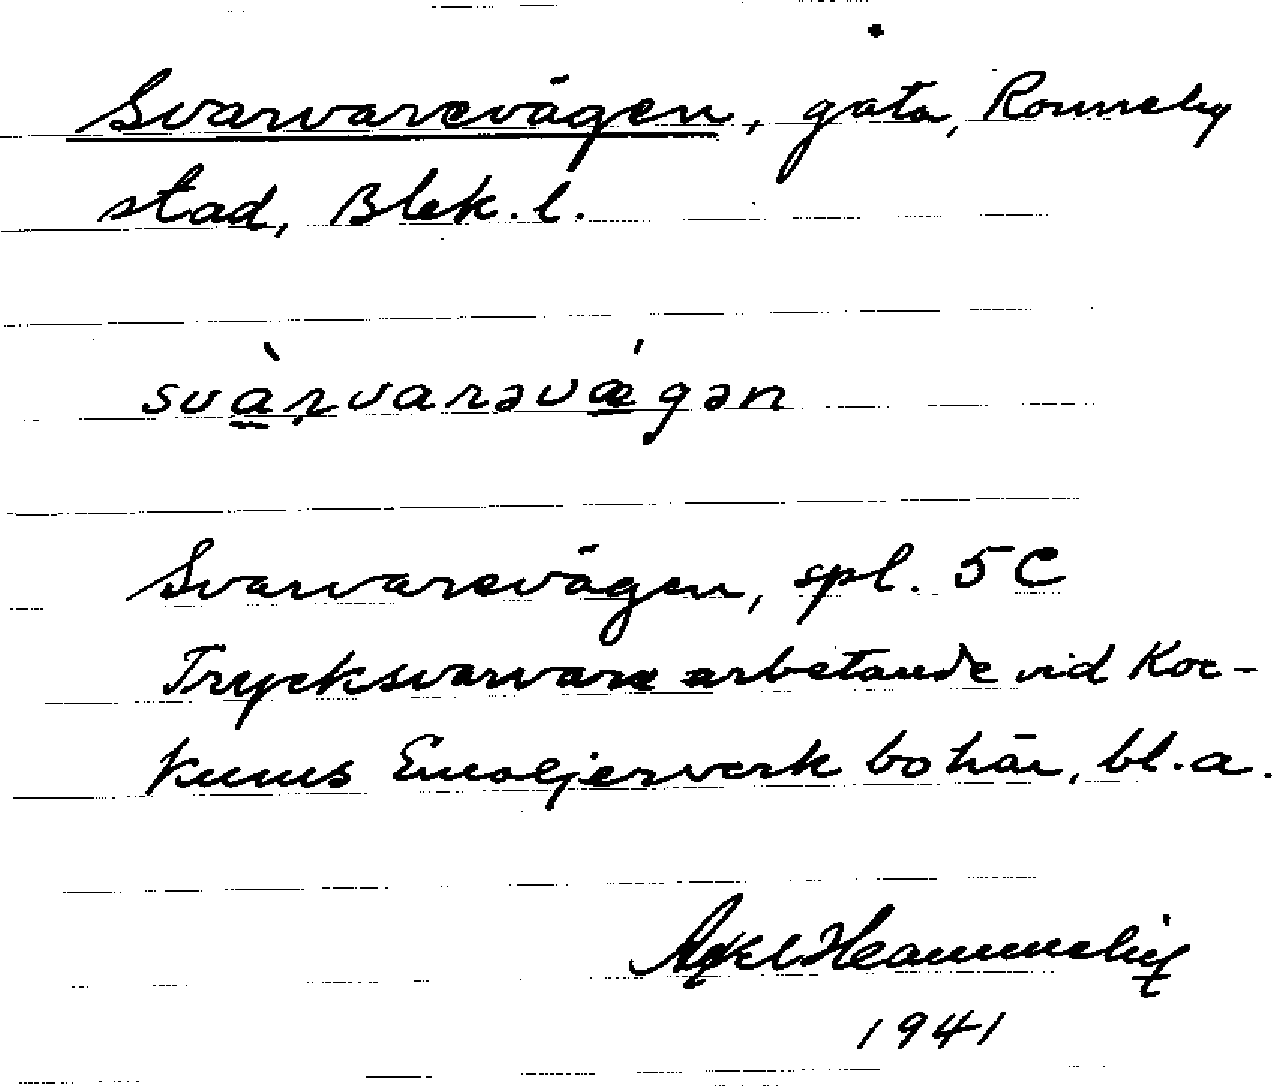 Svarvarevägen, gata, Ronneby
stad, Blek. l.
svàrvarəvǽgən
Svarvarevägen, spl. 5 C
Trycksvarvare arbetande vid Koc-
kums Emaljerverk bo här, bl.a.
Axel
1941